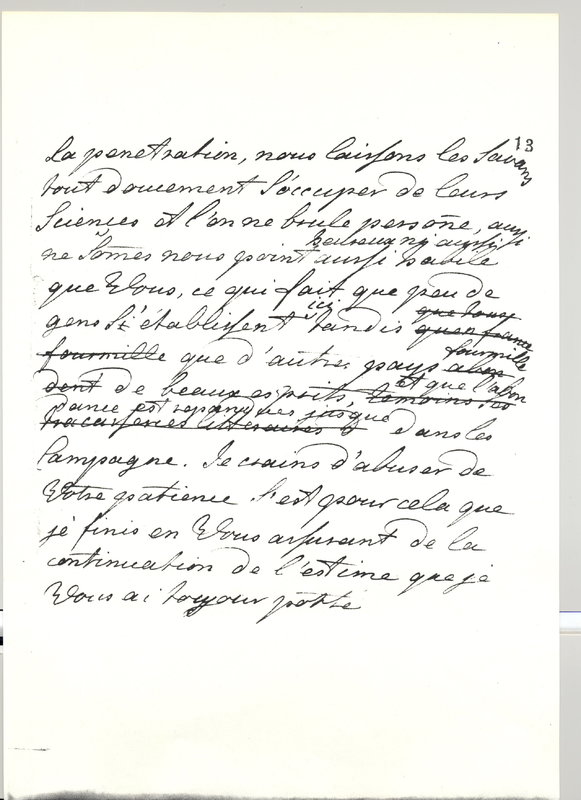 13
la penetration, nous laissons les savans
tout doucement s'occuper de leurs
sciences et l'on ne brule persone, aussi
ne somes nous point aussi habile
que Vous, ce qui fait que peu de
ici que tous
gens s'établissent tandis que en france
fourmille
fourmille que d'autres pays
de beaux esprits, temoins
et que l'abon
dance est repandues jusque
tracasseries litteraires dans les
Campagne. Je crains d'abuser de
Votre patience c'est pour cela que
je finis en Vous assurant de la
continuation de l'estime que je
Vous ai toujour porté